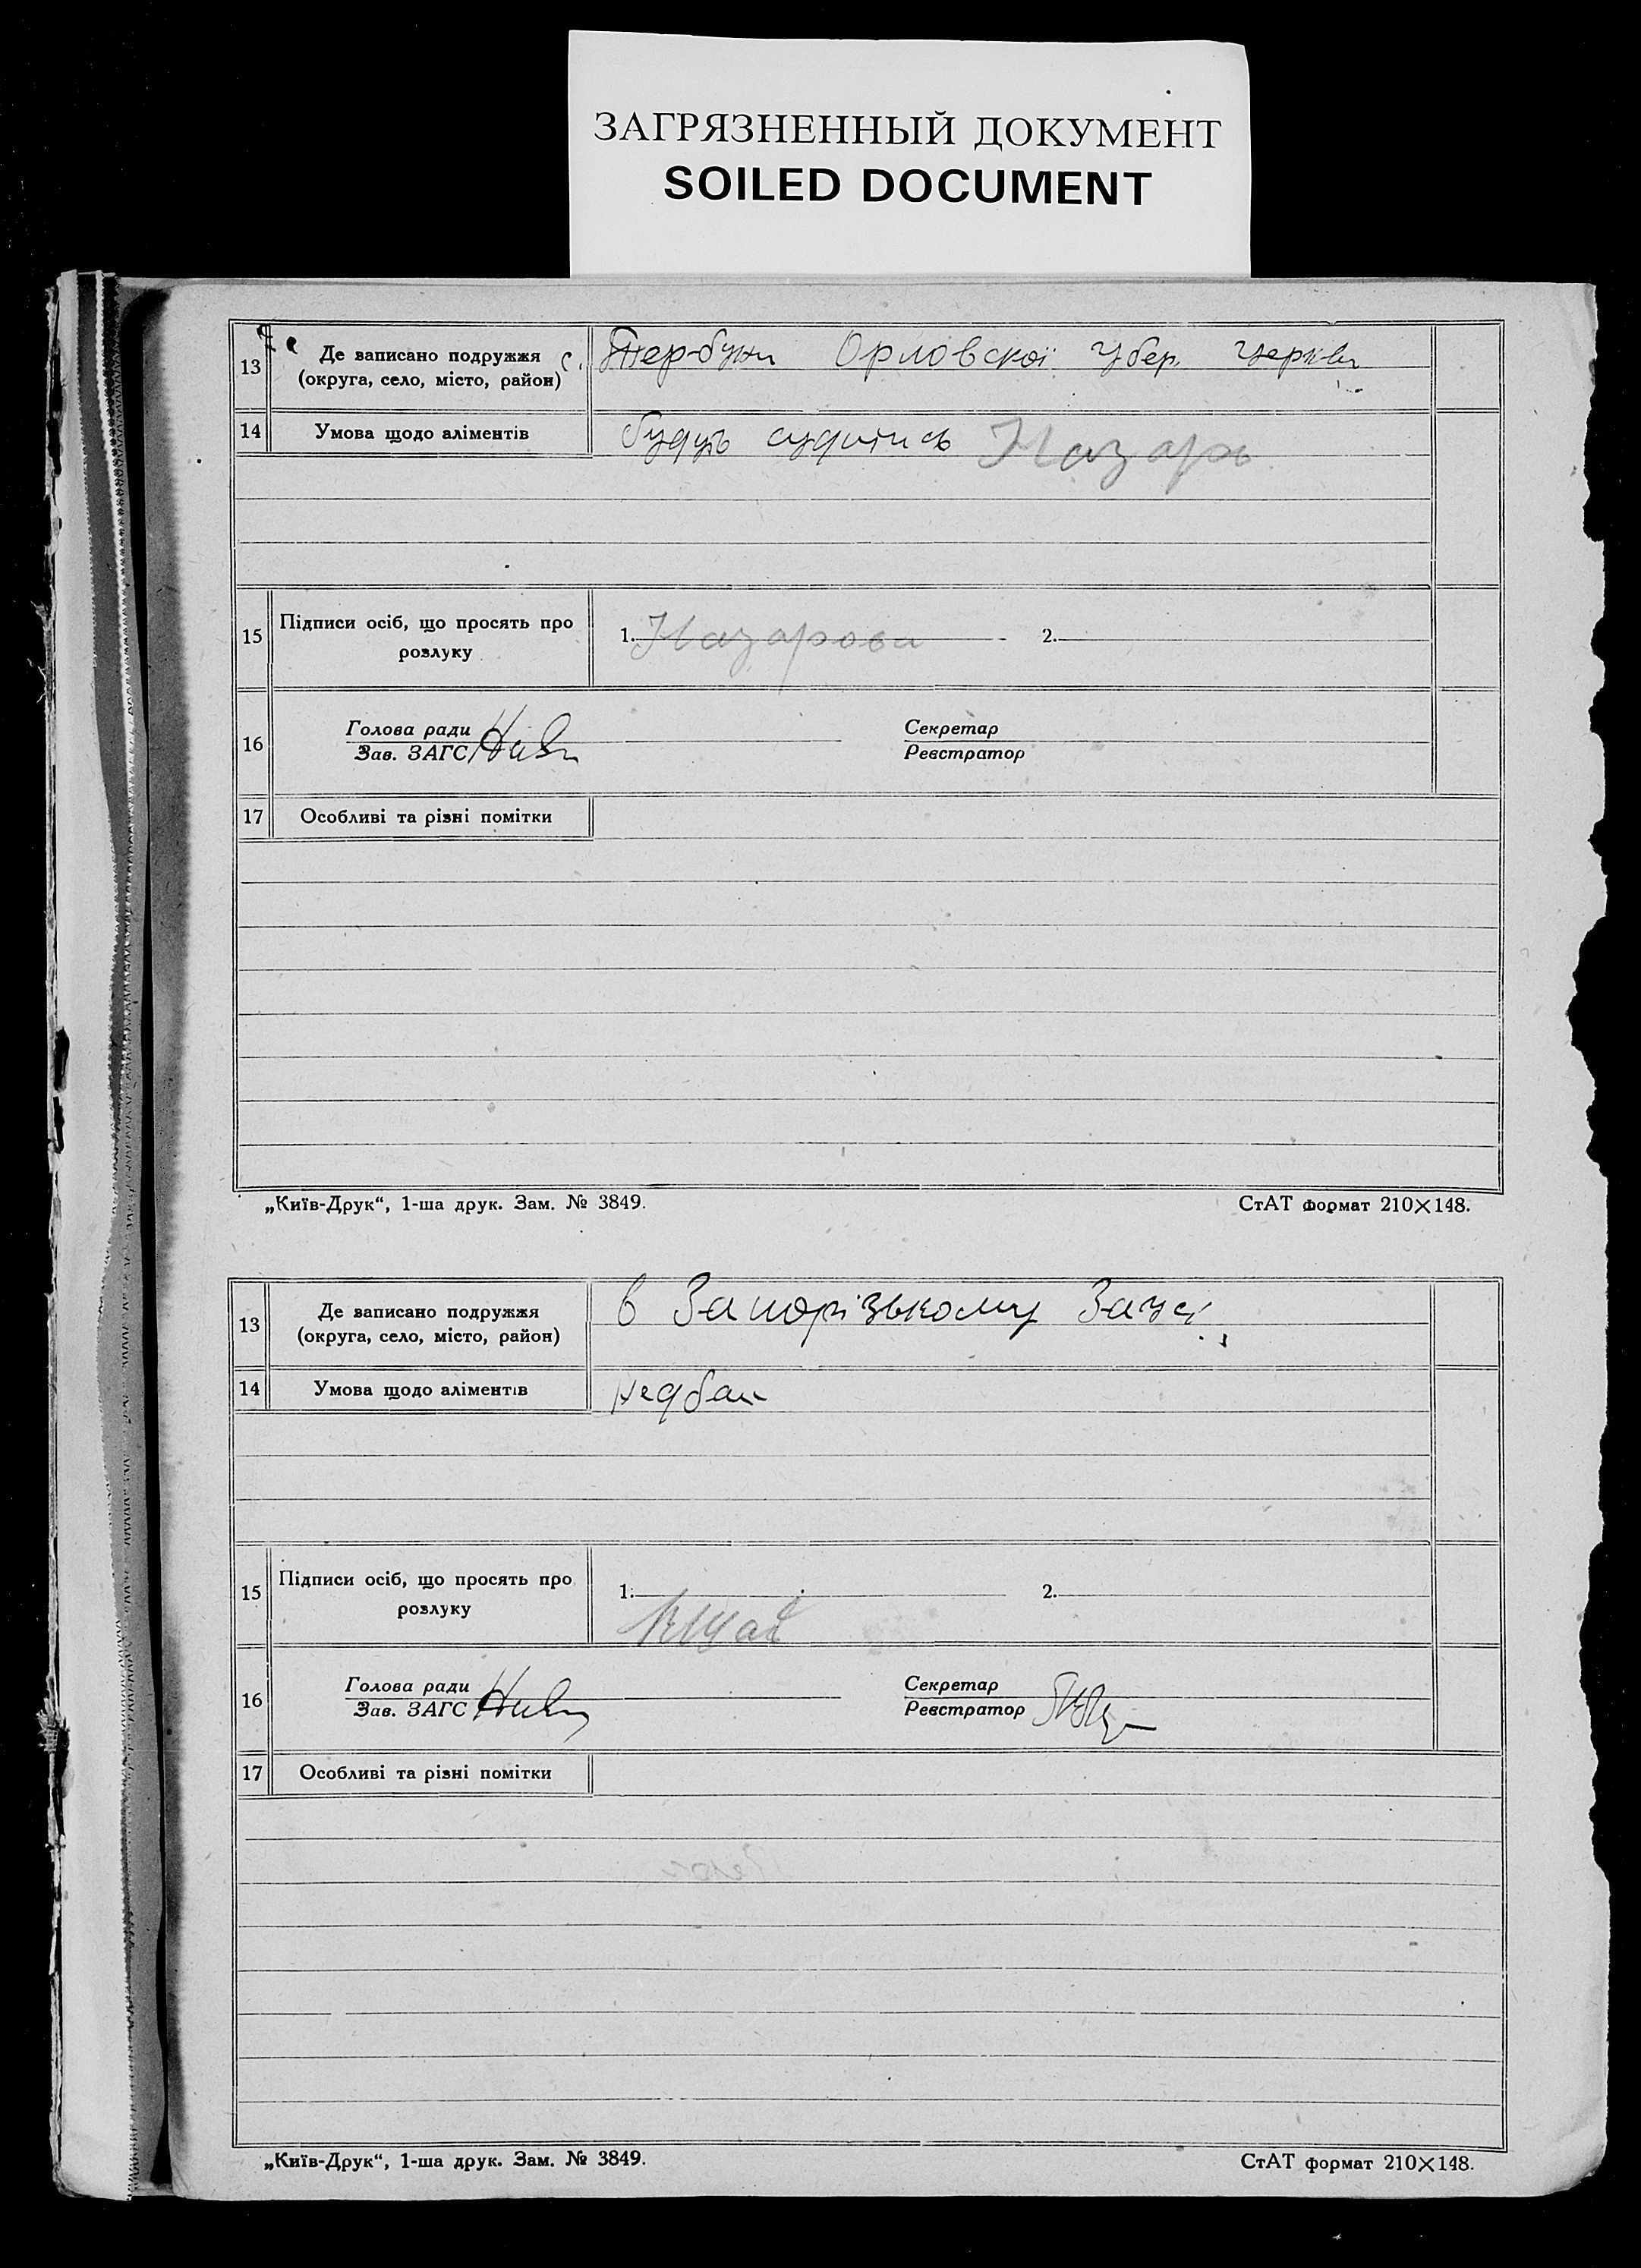 ЗАГРЯЗНЕННЫЙ ДОКУМЕНТ
SOILED DOCUMENT
13 Де записано подружжя
(округа, село, місто, район)
с. Тербуни Орловскої Убер. Церкви
14 Умова щодо аліментів
будуть судитись Назар
15 Підписи осіб, що просять про
розлуку
1. Назарова 2.
16 Голова ради
Зав. ЗАГС
Секретар
Реєстратор
17 Особливі та різні помітки
„Київ-Друк“, 1-ша друк. Зам. № 3849. СтАТ формат 210×148.
13 Де записано подружжя
(округа, село, місто, район)
в Запорізькому Загсі
14 Умова щодо аліментів
15 Підписи осіб, що просять про
розлуку
1. 2.
16 Голова ради
Зав. ЗАГС
Секретар
Реєстратор
17 Особливі та різні помітки
„Київ-Друк“, 1-ша друк. Зам. № 3849. СтАТ формат 210×148.